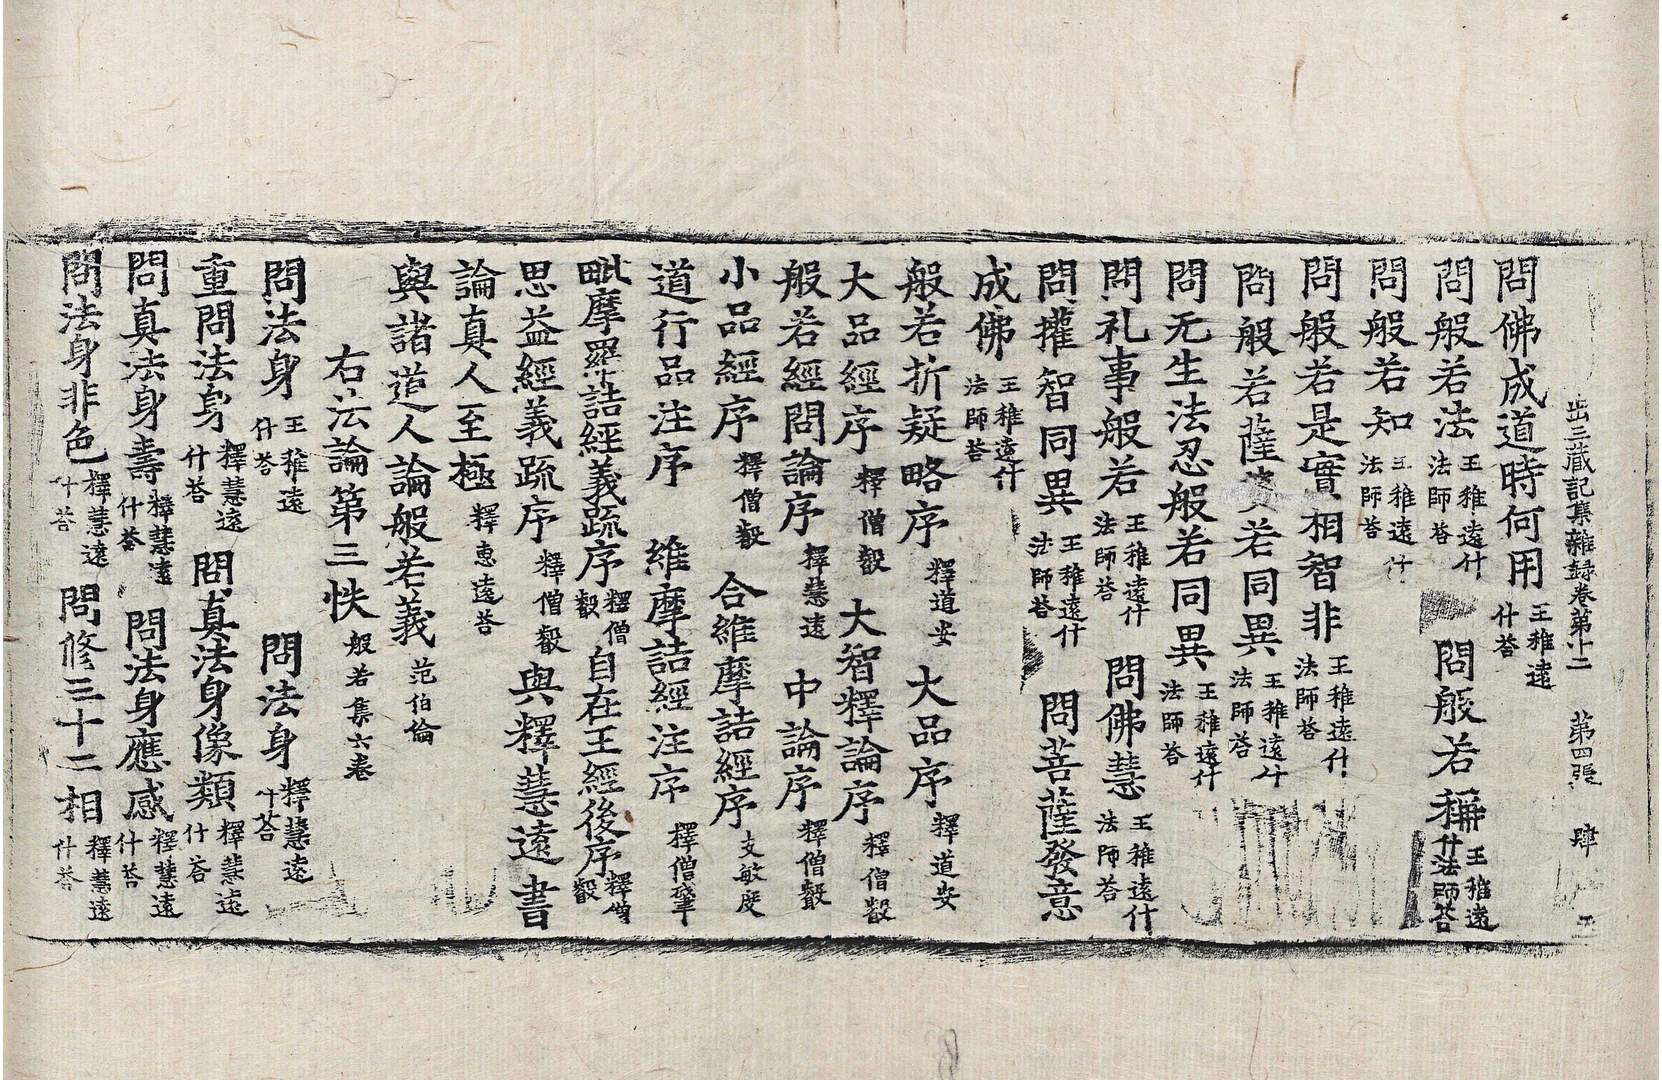 出三藏記集雜録卷第十二 第四張 肆
問佛成道時何用王稚遠什荅
問般若法王稚遠什法師荅 問般若稱王稚遠什法師荅
問般若知王稚遠什法師荅
問般若是實相智非王稚遠什法師荅
問般若薩婆若同異王稚遠什法師荅
問无生法忍般若同異王稚遠什法師荅
問礼事般若王稚遠什法師荅 問佛慧王稚遠什法師荅
問權智同異王稚遠什法師荅 問菩薩發意
成佛王稚遠什法師荅
般若折疑略序釋道安 大品序釋道安
大品經序釋僧叡 大智釋論序釋僧叡
般若經問論序釋慧遠 中論序釋僧叡
小品經序釋僧叡 合維摩詰經序支敏度
道行品注序 維摩詰經注序釋僧肇
毗摩羅詰經義䟽序釋僧叡 自在王經後序釋僧叡
思益經義䟽序釋僧叡 與釋慧遠書
論真人至極釋惠遠荅
與諸道人論般若義范伯倫
右法論第三帙般若集六卷
問法身王稚遠什荅 問法身釋慧遠什荅
重問法身釋慧遠什荅 問真法身像類釋慧遠什荅
問真法身壽釋慧遠什荅 問法身應感釋慧遠什荅
問法身非色釋慧遠什荅 問修三十二相釋慧遠什荅